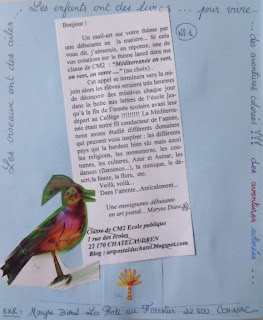 Les enfants ont des livres... pour vivre...
Les oiseaux ont des ailes...
...des aventures
N° 1
Bonjour !
Un mail-art sur votre thème par
une débutante en la matière... Si cela
vous dit, j'aimerais, en réponse, une de
vos créations sur le thème lancé dans ma
classe de CM2 : "Méditerranée en vert,
en vers, en verre ...." (au choix)
Cet appel se terminera vers la mi-
juin alors les élèves seraient très heureux
de découvrir des missives chaque jour
dans la boîte aux lettres de l'école jus-
qu'à la fin de l'année scolaire avant leur
départ au Collège !!!!!!!!! La Méditerra-
née étant notre fil conducteur de l'année,
nous avons étudié différents domaines
qui peuvent vous inspirer : les différents
pays qui la bordent bien sûr mais aussi
les religions, les monuments, les cou-
tumes, les cultures, Azur et Asmar, les
danses (flamenco...), la musique, le dé-
sert, la faune, la flore, etc.
Voilà, voilà...
Dans l'attente....Amicalement...
Une enseignante débutante
en art postal... Maryse Diane
Classe de CM2 Ecole publique
1 rue des écoles
22 170 CHATELAUDREN
Blog : artpostalduchatel.blogspot.com
EXP. : Maryse Diane La Porte au Forestier 22 800